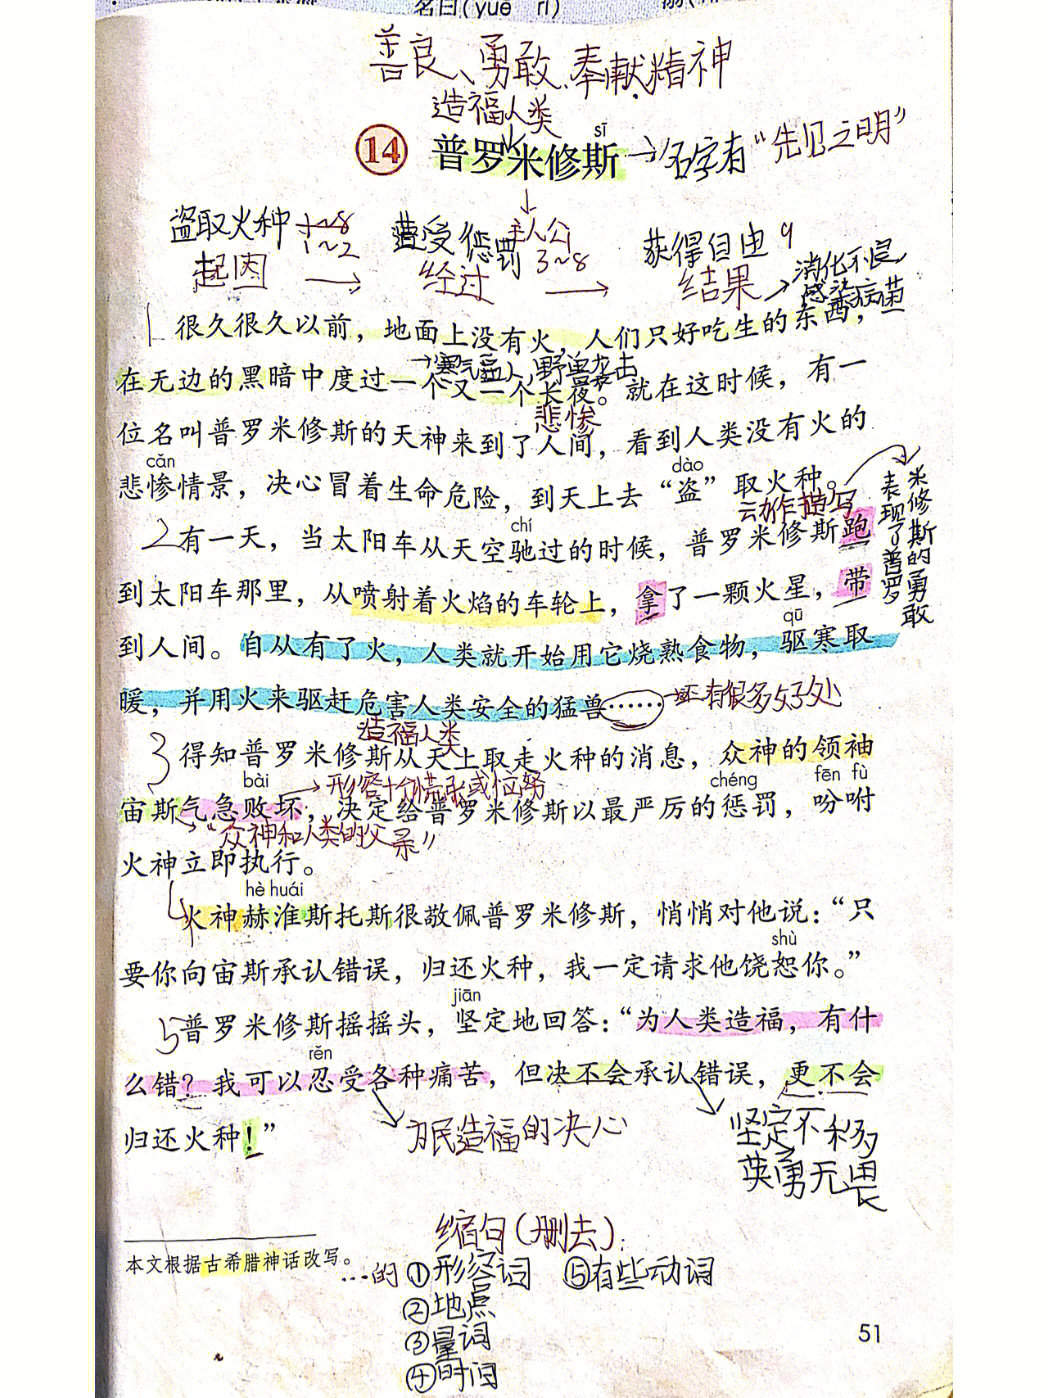 名曰(yuē rì)
善良、勇敢、奉献精神
造福人类
14 普罗米修斯 →名字有“先见之明”
sī
主人公
盗取火种 1~2 遭受惩罚 3~8 获得自由 9
起因 → 经过 → 结果 → 消化不良，
感染病菌
1 很久很久以前，地面上没有火，人们只好吃生的东西，
→寒气逼人，野兽龙击
在无边的黑暗中度过一个又一个长夜。就在这时候，有一
悲惨
位名叫普罗米修斯的天神来到了人间，看到人类没有火的
cǎn dào
悲惨情景，决心冒着生命危险，到天上去“盗”取火种。
动作描写
表现了普罗米修斯的勇敢
chí
2 有一天，当太阳车从天空驰过的时候，普罗米修斯跑
到太阳车那里，从喷射着火焰的车轮上，拿了一颗火星，带
qū
到人间。自从有了火，人类就开始用它烧熟食物，驱寒取
暖，并用火来驱赶危害人类安全的猛兽…… →还有很多好处
造福人类
3 得知普罗米修斯从天上取走火种的消息，众神的领袖
bài →形容十分慌张或恼怒 chéng fēn fù
宙斯气急败坏，决定给普罗米修斯以最严厉的惩罚，吩咐
→“众神和人类的父亲”
火神立即执行。
hè huái
4 火神赫淮斯托斯很敬佩普罗米修斯，悄悄对他说：“只
shù
要你向宙斯承认错误，归还火种，我一定请求他饶恕你。”
jiān
5 普罗米修斯摇摇头，坚定地回答：“为人类造福，有什
rěn
么错？我可以忍受各种痛苦，但决不会承认错误，更不会
归还火种！”
为民造福的决心
坚定不移
英勇无畏
缩句(删去)：
本文根据古希腊神话改写。
…的 ①形容词 ⑤有些动词
②地点
③量词
④时间
51